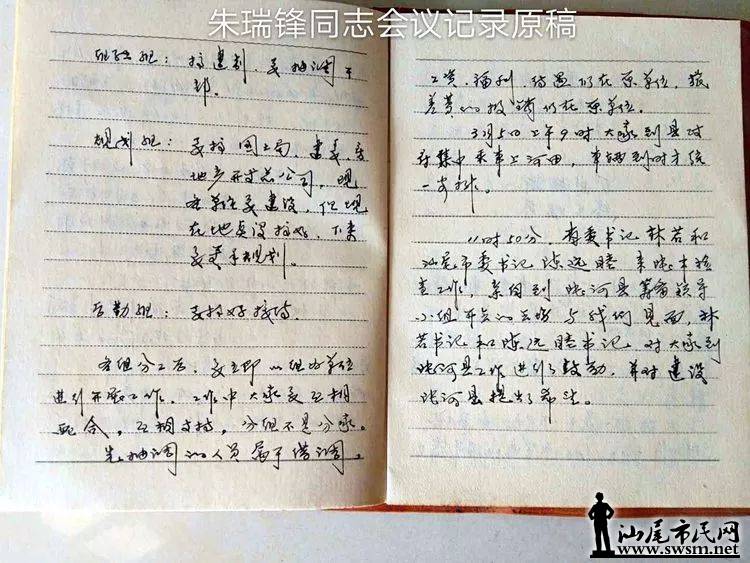 朱瑞锋同志会议记录原稿
组织组：搞建制、要抽调干
部。
规划组：要搞国土局、建委、房
地产开发总公司，现
在关键要建设，但现
在地点没搞好，下来
要着手规划。
后勤组：要搞好接待。
各组分工后，要立即以组为单位
进行开展工作，工作中大家要互相
配合，互相支持，分组不是分家。
先抽调的人员属于借调，
工资、福利、待遇仍在原单位，旅
差费的报销仍在原单位。
3月5日上午9时大家到县政
府集中乘车上河田，车辆到时才统
一安排。
11时50分，省委书记林若和
汕尾市委书记陈选胜来陆丰检
查工作，亲自到陆河县筹备领导
小组开会的会场与我们见面，林
若书记和陈选胜书记，对大家到
陆河县工作进行了鼓励，并对建设
陆河县提出了希望。
汕尾市民网
www.swsm.net